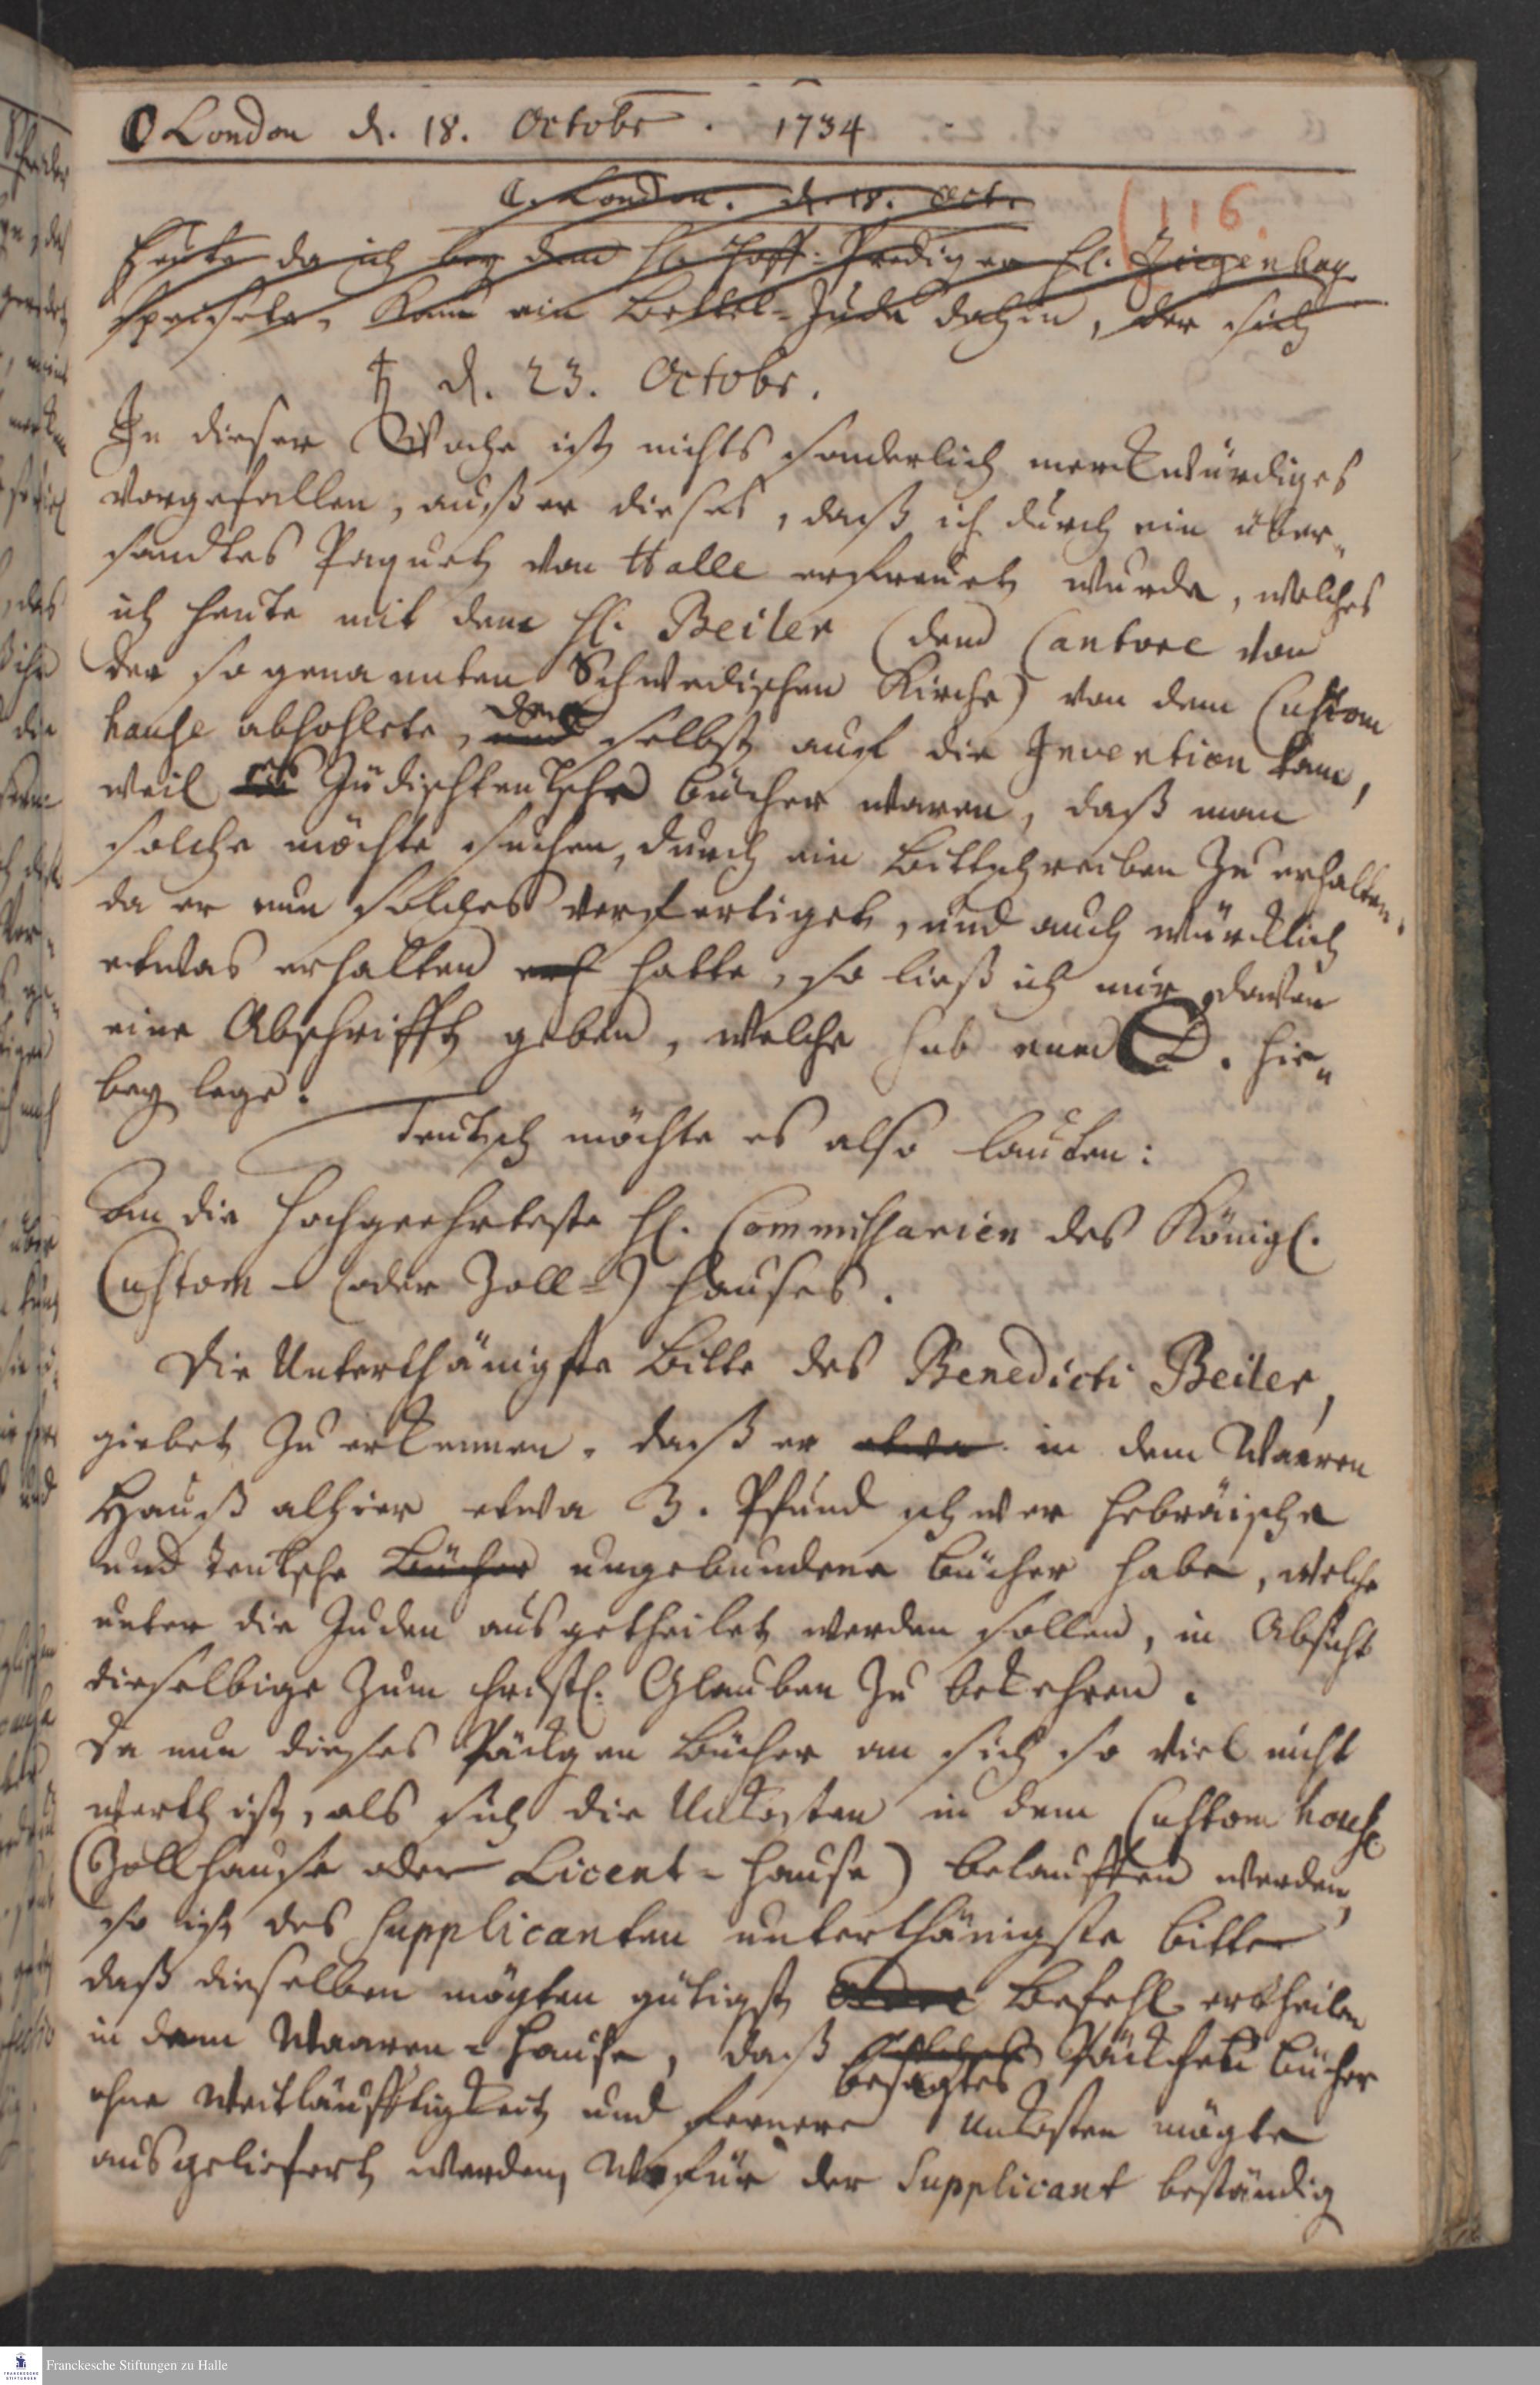 London d. 18. Octobr. 1734
C. London. d. 18. Oct.
(116.
Heute da ich bey dem H. Hoff-Prediger H. Ziegenhag.
speisete, kam ein Bettel-Jude dahin, der sich
♄ d. 23. Octobr.
In dieser Woche ist nichts sonderlich merckwürdiges
vorgefallen, außer dieses, daß ich durch ein über„
sandtes Paquet von Halle erfreuet wurde, welches
ich heute mit dem H. Beiler (dem Cantore von
der sogenannten Schwedischen Kirche) von dem Custom
hause abhohlete, und selbst auf die Invention kam,
weil es Jüdischteutsche bücher waren, daß man
solche möchte suchen, durch ein Bittschreiben zu erhalten.
da er nun solches verfertiget, und auch würcklich
etwas erhalten hatte, so ließ ich mir davon
eine Abschrifft geben, welche sub num D. hie„
bey lege.
Teutsch möchte es also lauten:
An die Hochgeehrteste H. Commissarien des Königl.
Custom- (oder Zoll-) Hauses.
Die Unterthänigste Bitte des Benedicti Beiler,
giebet zu erkennen, daß er etwa in dem Waaren
Hauß alhier etwa 3. Pfund schwer hebräische
und teutsche Bücher ungebundene bücher habe, welche
unter die Juden ausgetheilet werden sollen, in Absicht
dieselbige zum christl. Glauben zu bekehren.
Da nun dieses Päckgen Bücher an sich so viel nicht
werth ist, als sich die Unkosten in dem Custom house
(Zollhause oder Licent-Hause) belauffen werden,
so ist des Supplicanten unterthänigste bitte
daß dieselben mögten gütigst Ordre Befehl ertheilen
in dem Waaren-Hause, daß Päckchen bücher
besagtes
ohne Weitläufftigkeit und fernere Unkosten mögte
ausgeliefert werden, Wofür der Supplicant beständig
Franckesche Stiftungen zu Halle